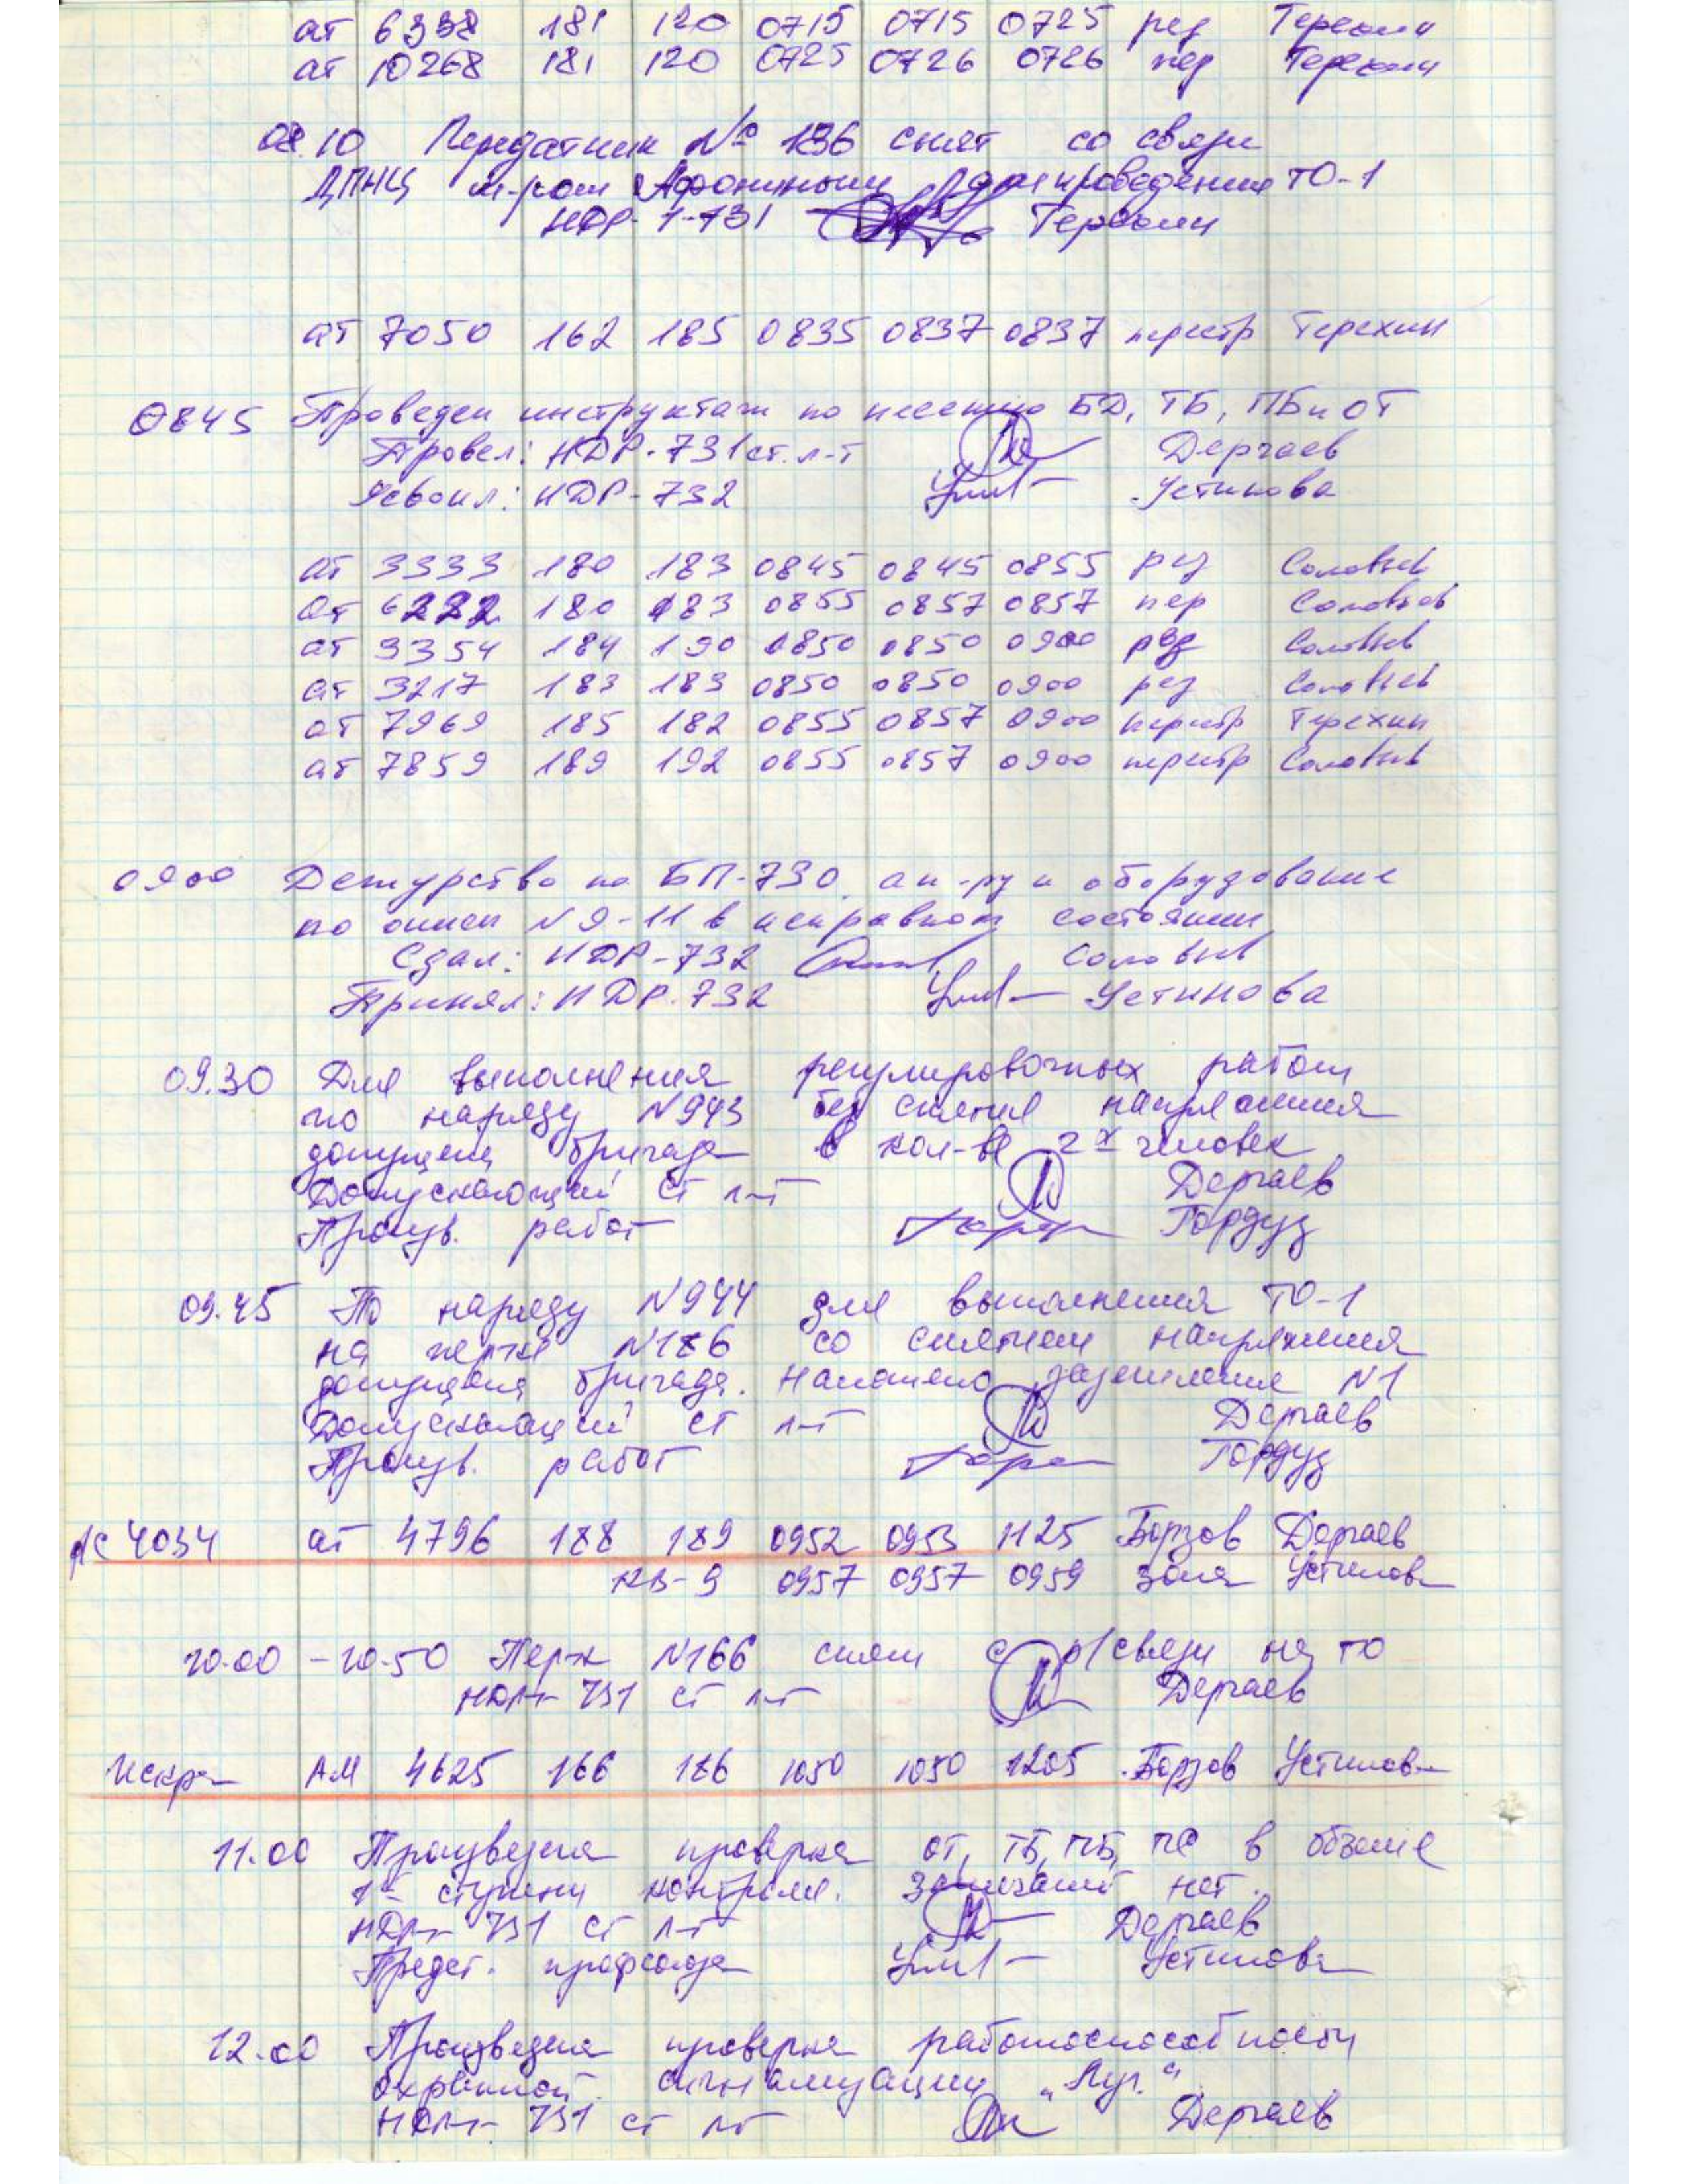 ат 6338 181 120 0715 0715 0725 рез Терехин
ат 10268 181 120 0725 0726 0726 пер Терехин
08.10 Передатчик № 186 снят со связи
ДПНЦ м-ром Афониным для проведения ТО-1
НДР-1-731 Терехин
ат 7050 162 185 0835 0837 0837 перестр Терехин
0845 Проведен инструктаж по несению БД, ТБ, ПБ и ОТ
Провел: НДР-731 ст. л-т Дергаев
Усвоил: НДР-732 Устинова
ат 3333 180 183 0845 0845 0855 рез Соловьев
ат 6222 180 183 0855 0857 0857 пер Соловьев
ат 3354 184 190 0850 0850 0900 рез Соловьев
ат 3217 183 183 0850 0850 0900 рез Соловьев
ат 7969 185 182 0855 0857 0900 перестр Терехин
ат 7859 189 192 0855 0857 0900 перестр Соловьев
0900 Дежурство по БП-730, ап-ру и оборудование
по описи N 9-11 в исправном состоянии
Сдал: НДР-732 Соловьев
Принял: НДР-732 Устинова
09.30 Для выполнения регулировочных работ
по наряду N943 без снятия напряжения
допущена бригада в кол-ве 2х человек
Допускающий ст л-т Дергаев
Произв. работ Гордуз
09.45 По наряду N944 для выполнения ТО-1
на перке N186 со снятием напряжения
допущена бригада. Наложено заземление N1
Допускающий ст л-т Дергаев
Произв. работ Гордуз
рс 4034 ат 4796 188 189 0952 0953 1125 Борзов Дергаев
КВ-9 0957 0957 0959 Устинова
10.00 - 10.50 Перк N166 снят с р/связи на ТО
НДР-731 ст л-т Дергаев
Искра АМ 4625 166 186 1050 1050 1205 Борзов Устинова
11.00 Произведена проверка ОТ, ТБ, ПБ, ПС в объеме
1й ступени контроля. Замечаний нет.
НДР-731 ст л-т Дергаев
Предст. профсоюза Устинова
12.00 Произведена проверка работоспособности
охранной сигнализации "Луч"
НДР-731 ст л-т Дергаев